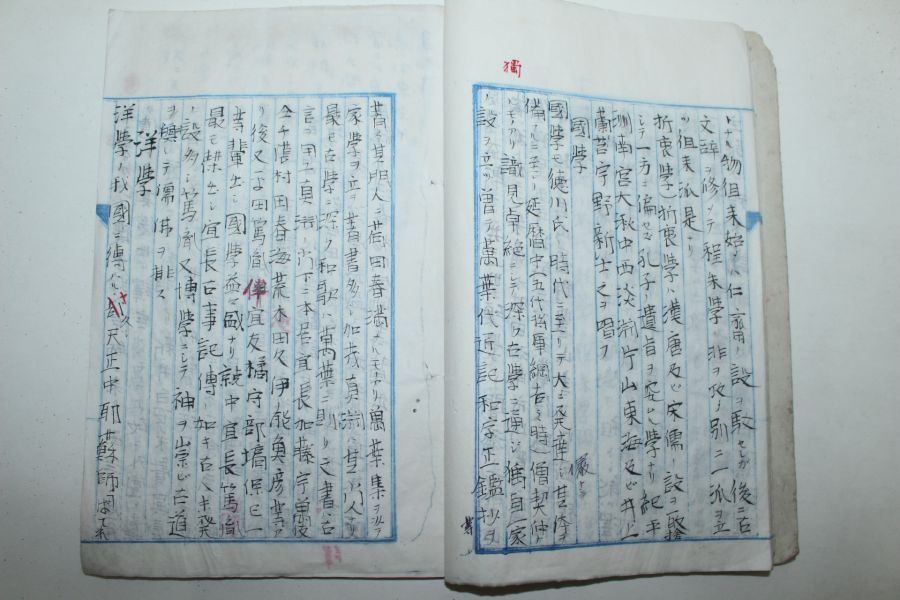 獨
ト云フ物徂来始メハ仁斎ノ設ヲ駁セシガ後ニ古
文辞ヲ修メテ程朱学ノ非ヲ攻メ別ニ一派ヲ立
ツ徂来派是ナリ
折衷学 折衷学ハ漢唐及ビ宋儒ノ設ヲ
シテ一方ニ偏セズ孔子ノ遺旨ヲ学ナリ紀平
洲南宮大湫中西淡淵片山東海及ビ井上
蘭台宇野新士之ヲ唱フ
国学
国学モ徳川氏ノ時代ニ至リテ大ニ発達シ其
備ハルニ至レリ延暦中五代将軍綱吉ノ時僧契仲
ナルモノアリ識見卓絶ニシテ深ク古学ニ通ジ獨自一家
ノ設ヲ立ツ曽テ萬葉代近記和字正鑑抄ヲ
著ス其門人ニ荷田春満ナルモノアリ萬葉集ヲ以テ
家学ヲ立ツ著書多シ加茂真淵ハ其ノ門人ナリ
最モ古学ニ深ク和歌ハ萬葉ニ則リ文書ハ古
言ニ 真淵ノ門下ニ本居宜長加藤宇
村田春海荒木田久 伊能魚彦等ア
リ後又平田篤胤伴宜友橘守部塙保已一
等輩出シ国学益々盛ナリ就中宜長篤胤
最モ傑出シ宜長古事記傳ノ如キ古人ノ未発
ノ設多シ篤胤又博学ニシテ神ヲ崇ビ古道
ヲ興シテ儒佛ヲ排ス
洋学
洋学ノ我國ニ傳ハル 天正中耶蘇師